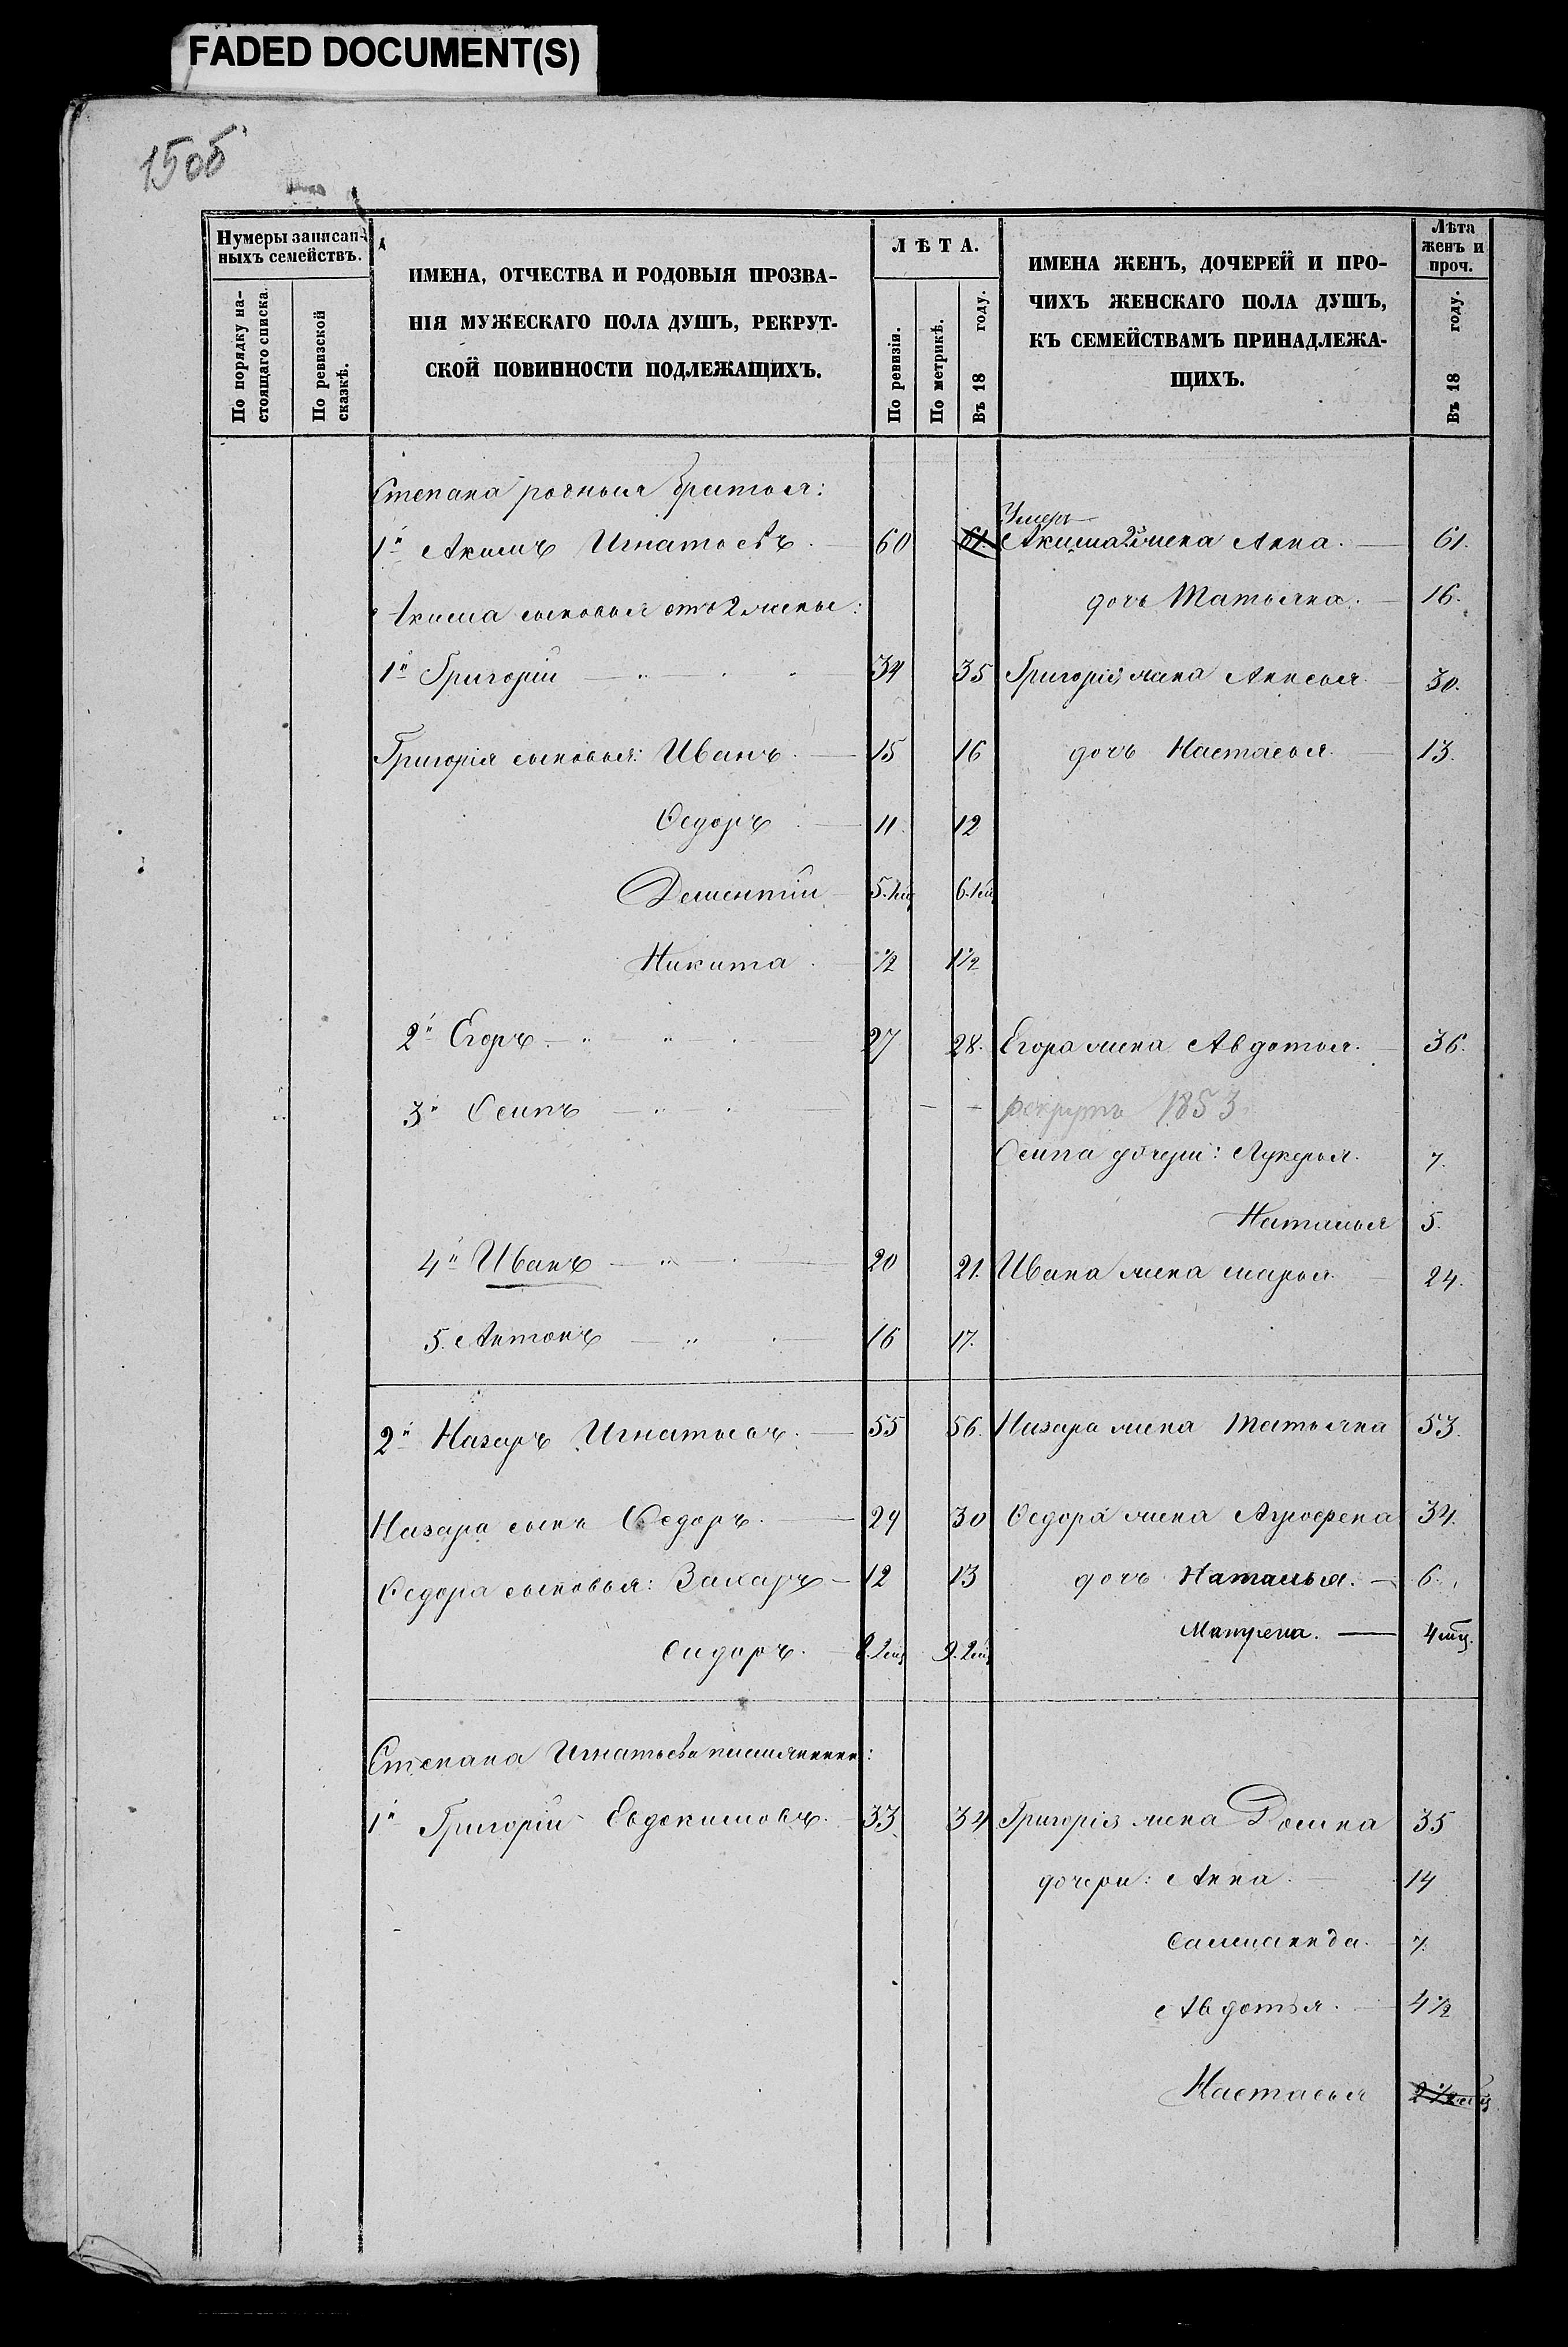 FADED DOCUMENT(S)
150б
Нумеры записан-
ныхъ семействъ.
По порядку на-
стоящаго списка.
По ревизской
сказкѣ.
ИМЕНА, ОТЧЕСТВА И РОДОВЫЯ ПРОЗВА-
НІЯ МУЖЕСКАГО ПОЛА ДУШЪ, РЕКРУТ-
СКОЙ ПОВИННОСТИ ПОДЛЕЖАЩИХЪ.
ЛѢТА.
По ревизіи.
По метрикѣ.
Въ 18 году.
ИМЕНА ЖЕНЪ, ДОЧЕРЕЙ И ПРО-
ЧИХЪ ЖЕНСКАГО ПОЛА ДУШЪ,
КЪ СЕМЕЙСТВАМЪ ПРИНАДЛЕЖА-
ЩИХЪ.
Лѣта
женъ и
проч.
Въ 18 году.
Степана родныя братья:
Умеръ
1й Акимъ Игнатьевъ. 60 61. Акима 2я жена Анна. 61.
Акима сыновья отъ 2 жены: дочь Татьяна. 16.
1й Григорій 34 35 Григорія жена Аксинья 30.
Григорія сыновья: Иванъ. 15 16 дочь Настасья. 13.
Ѳедоръ 11. 12
Дементій 5.1мц 6.1мц
Никита. 1/2 1 1/2
2й Егоръ. 27 28. Егора жена Авдотья. 36.
3й Осипъ рекрутъ 1853
Осипа дочери: Лукерья. 7.
Наталья 5.
4й Иванъ 20 21. Ивана жена Марья. 24.
5. Антонъ 16 17.
2й Назаръ Игнатьевъ. 55 56. Назара жена Татьяна 53.
Назара сынъ Ѳедоръ. 29 30 Ѳедора жена Агрофена 34.
Ѳедора сыновья: Захаръ 12 13 дочь Наталья. 6.
Сидоръ. 8.2мц 9.2мц Матрена. 4 мц.
Степана Игнатьева племянники:
1й Григорій Евдокимовъ. 33 34 Григорія жена Домна 35
дочери: Анна. 14
7.
Авдотья. 4 1/2
Настасья